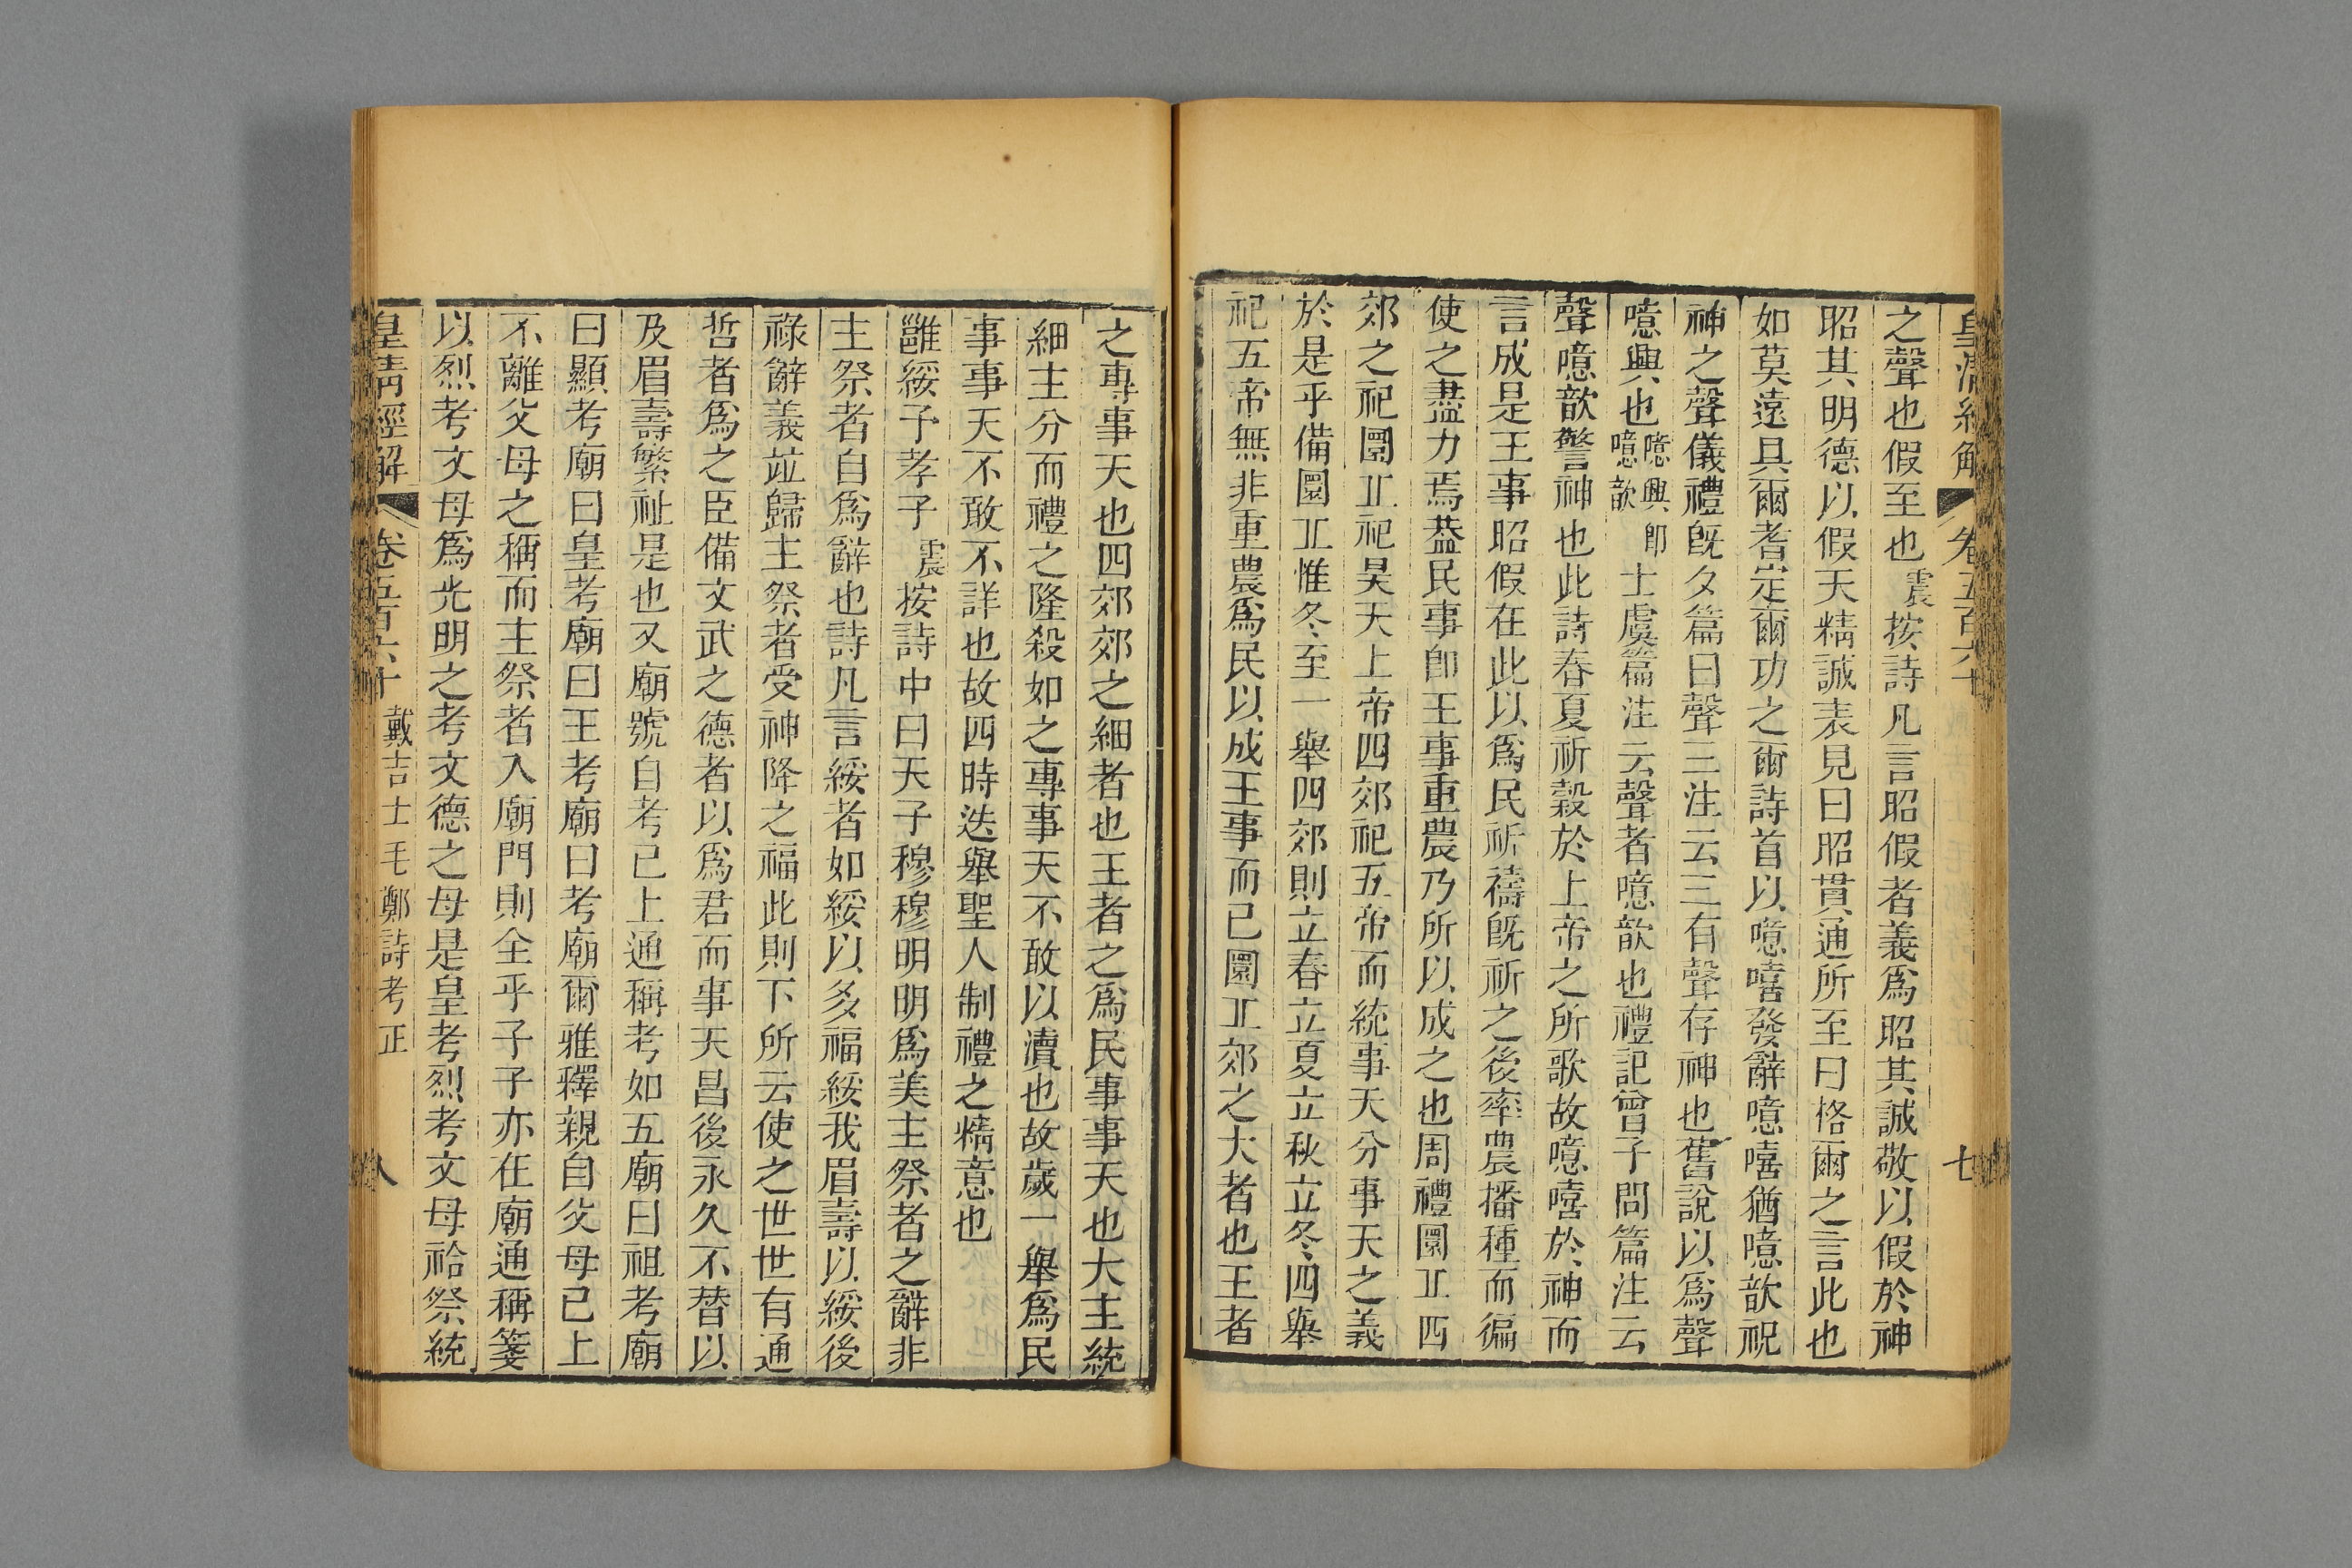 皇清經解 卷五百六十 七
之聲也假至也震按詩凡言昭假者義爲昭其誠敬以假於神
昭其明德以假天精誠表見曰昭貫通所至曰格爾之言此也
如莫遠具爾耆定爾功之爾詩首以噫嘻發辭噫嘻猶噫歆祝
神之聲儀禮旣夕篇曰聲三注云三有聲存神也舊說以爲聲
噫興也噫興卽噫歆士虞篇注云聲者噫歆也禮記曾子問篇注云
聲噫歆警神也此詩春夏祈穀於上帝之所歌故噫嘻於神而
言成是王事昭假在此以爲民祈禱旣祈之後率農播種而徧
使之盡力焉葢民事卽王事重農乃所以成之也周禮圜丠四
郊之祀圜丠祀昊天上帝四郊祀五帝而統事天分事天之義
於是乎備圜丠惟冬至一舉四郊則立春立夏立秋立冬四舉
祀五帝無非重農爲民以成王事而已圜丠郊之大者也王者
之專事天也四郊郊之細者也王者之爲民事事天也大主統
細主分而禮之隆殺如之專事天不敢以瀆也故歲一舉爲民
事事天不敢不詳也故四時迭舉聖人制禮之精意也
雝綏予孝子震按詩中曰天子穆穆明明爲美主祭者之辭非
主祭者自爲辭也詩凡言綏者如綏以多福綏我眉壽以綏後
祿辭義竝歸主祭者受神降之福此則下所云使之世世有通
哲者爲之臣備文武之德者以爲君而事天昌後永久不替以
及眉壽繁祉是也又廟號自考已上通稱考如五廟曰祖考廟
曰顯考廟曰皇考廟曰王考廟曰考廟爾雅釋親自父母已上
不離父母之稱而主祭者入廟門則全乎子子亦在廟通稱箋
以烈考文母爲光明之考文德之母是皇考烈考文母祫祭統
皇清經解 卷五百六十 戴吉士毛鄭詩考正 八